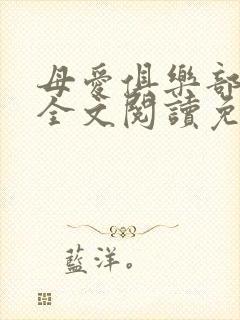 母愛俱樂部
全文閱讀免
藍洋。